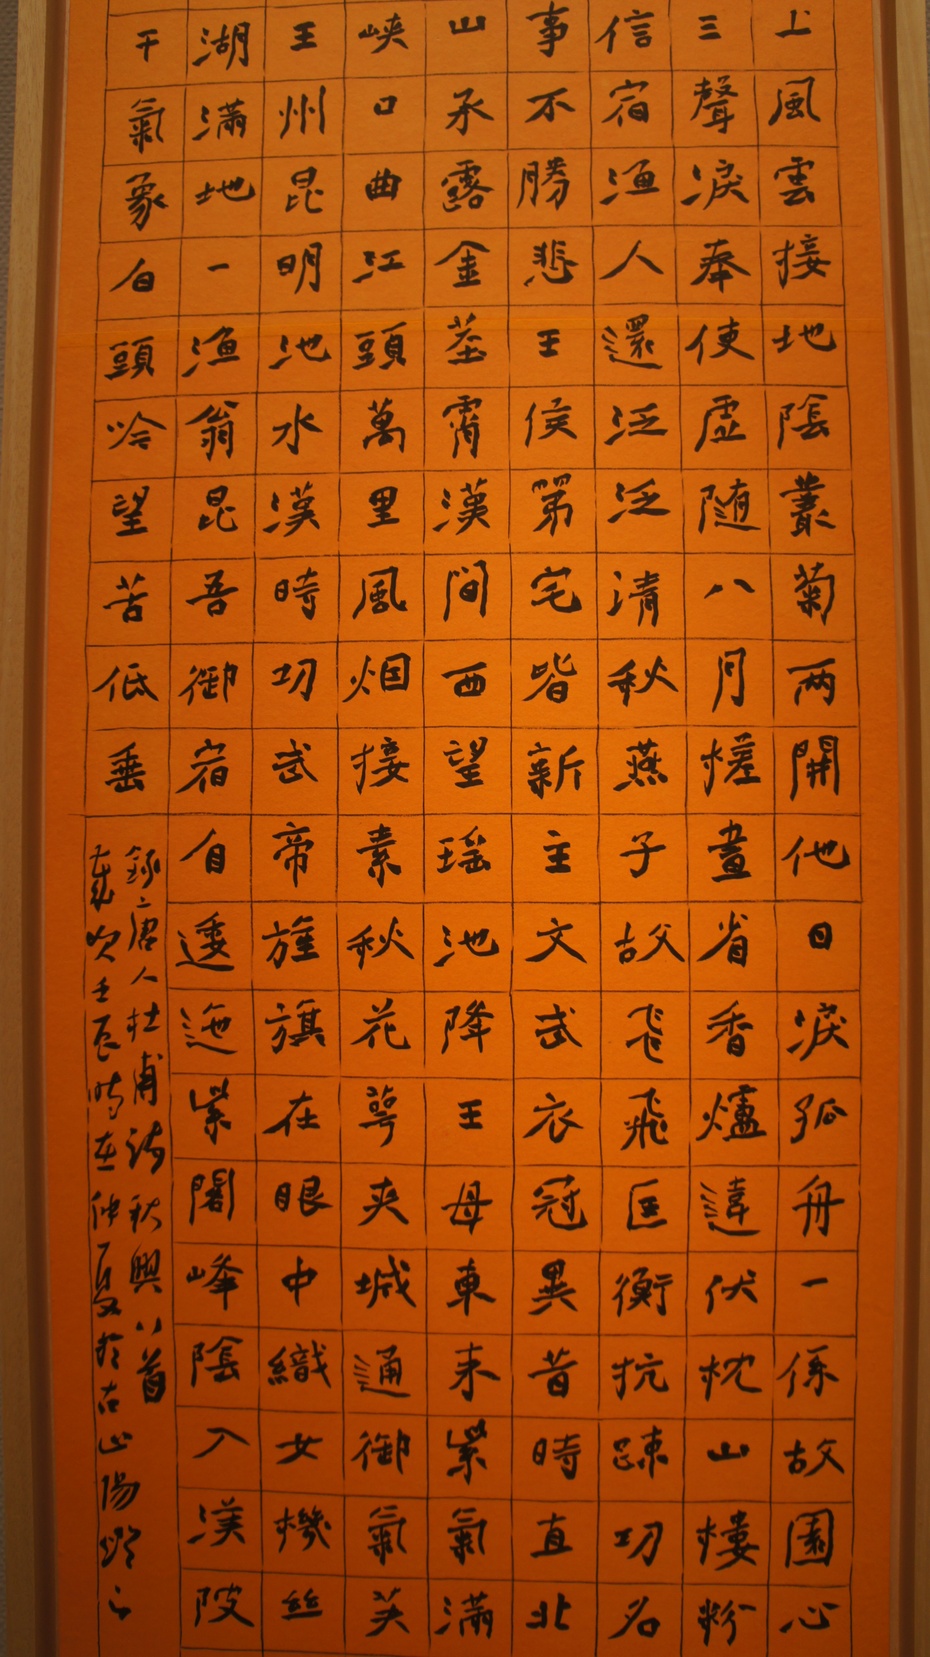 上風雲接地陰叢菊两開他日淚孤舟一係故園心
三聲淚奉使虛随八月槎晝省香爐違伏枕山樓粉
信宿漁人還泛泛清秋燕子故飞飛匡衡抗疎功名
事不勝悲王侯第宅皆新主文武衣冠異昔時直北
山承露金茎霄漢間西望瑶池降王母東来紫氣滿
峽口曲江頭萬里風烟接素秋花萼夾城通御氣芙
王州昆明池水漢時功武帝旌旗在眼中織女機丝
湖滿地一漁翁昆吾御宿自逶迤紫閣峰陰入渼陂
干氣象白頭吟望苦低垂
錄唐人杜甫詩秋興八首
歲次壬辰時在仲夏於古山陽